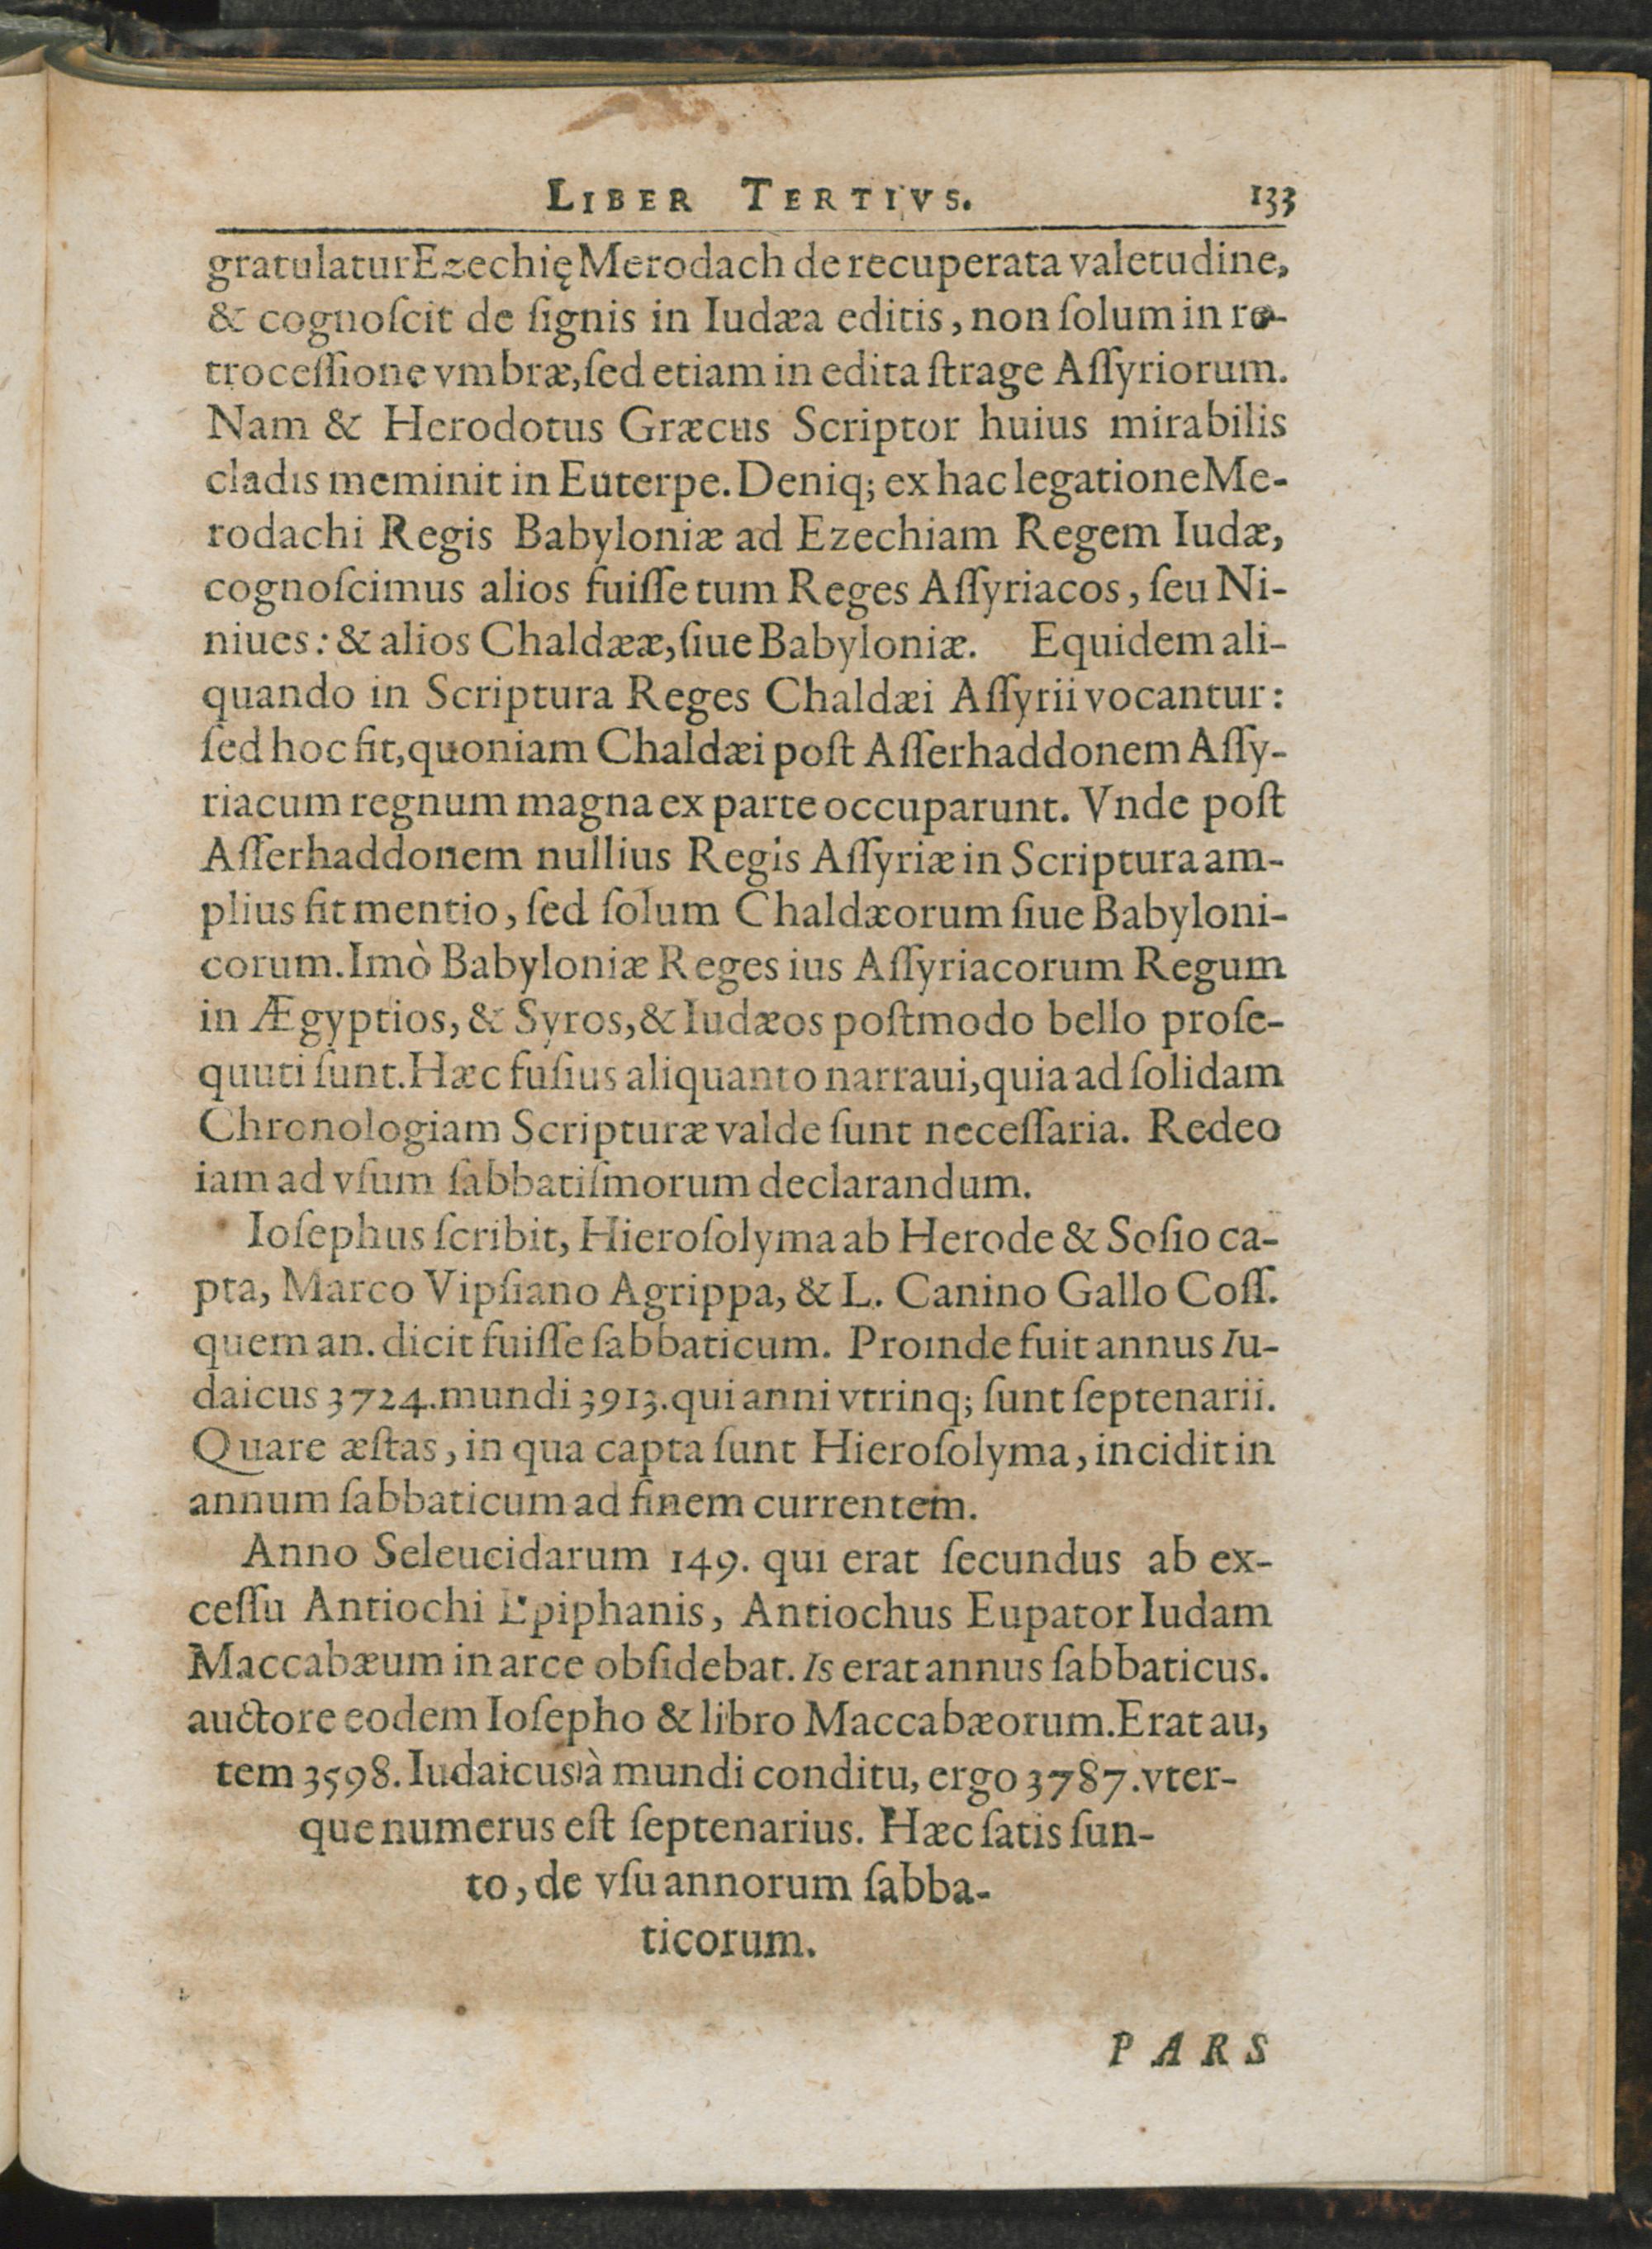 LIBER TERTIVS. 133
gratulatur Ezechię Merodach de recuperata valetudine,
& cognoſcit de ſignis in Iudæa editis, non ſolum in re-
troceſſione vmbræ, ſed etiam in edita ſtrage Aſſyriorum.
Nam & Herodotus Græcus Scriptor huius mirabilis
cladis meminit in Euterpe. Deniq; ex hac legatione Me-
rodachi Regis Babyloniæ ad Ezechiam Regem Iudæ,
cognoſcimus alios fuiſſe tum Reges Aſſyriacos, ſeu Ni-
niues: & alios Chaldææ, ſiue Babyloniæ. Equidem ali-
quando in Scriptura Reges Chaldæi Aſſyrii vocantur:
ſed hoc fit, quoniam Chaldæi poſt Aſſerhaddonem Aſſy-
riacum regnum magna ex parte occuparunt. Vnde poſt
Aſſerhaddonem nullius Regis Aſſyriæ in Scriptura am-
plius fit mentio, ſed ſolum Chaldæorum ſiue Babyloni-
corum. Imò Babyloniæ Reges ius Aſſyriacorum Regum
in Ægyptios, & Syros, & Iudæos poſtmodo bello proſe-
quuti ſunt. Hæc fuſius aliquanto narraui, quia ad ſolidam
Chronologiam Scripturæ valde ſunt neceſſaria. Redeo
iam ad vſum ſabbatiſmorum declarandum.
Ioſephus ſcribit, Hieroſolyma ab Herode & Soſio ca-
pta, Marco Vipſiano Agrippa, & L. Canino Gallo Coſſ.
quem an. dicit fuiſſe ſabbaticum. Proinde fuit annus Iu-
daicus 3724. mundi 3913. qui anni vtrinq; ſunt ſeptenarii.
Quare æſtas, in qua capta ſunt Hieroſolyma, incidit in
annum ſabbaticum ad finem currentem.
Anno Seleucidarum 149. qui erat ſecundus ab ex-
ceſſu Antiochi Epiphanis, Antiochus Eupator Iudam
Maccabæum in arce obſidebat. Is erat annus ſabbaticus.
auctore eodem Ioſepho & libro Maccabæorum. Erat au,
tem 3598. Iudaicus à mundi conditu, ergo 3787. vter-
que numerus eſt ſeptenarius. Hæc ſatis ſun-
to, de vſu annorum ſabba-
ticorum.
PARS